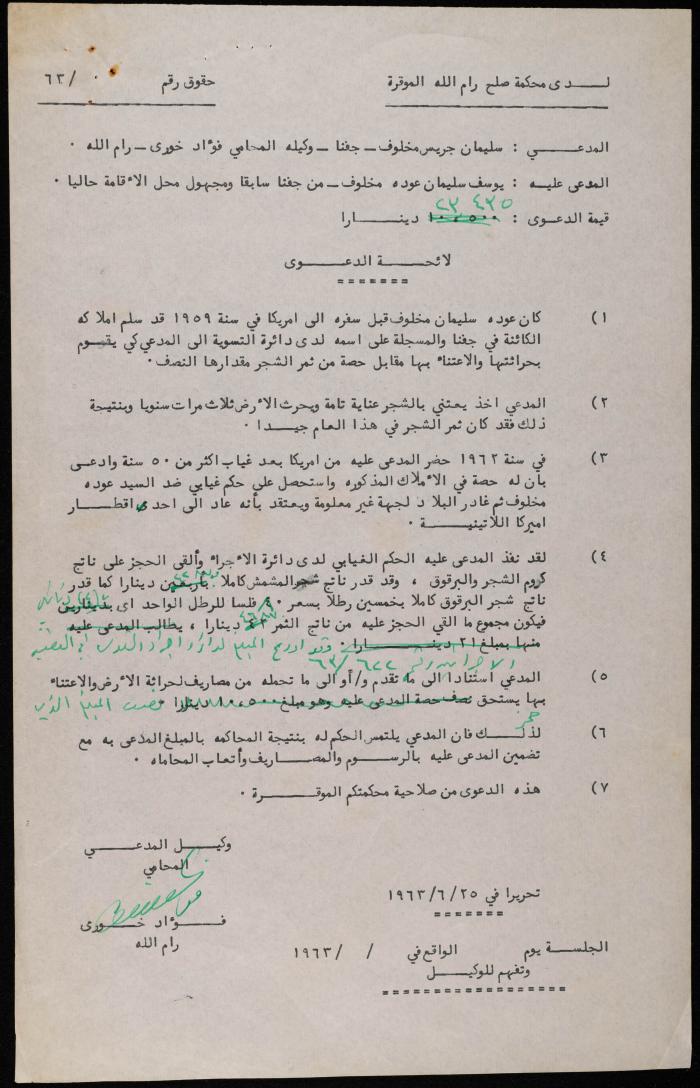 لدى محكمة صلح رام الله الموقرة
حقوق رقم /٦٣
المدعي : سليمان جريس مخلوف – جفنا – وكيله المحامي فؤاد خورى – رام الله ٠
المدعى عليه : يوسف سليمان عوده مخلوف – من جفنا سابقا ومجهول محل الاقامة حاليا ٠
٢٣ ٤٣٥
قيمة الدعوى : ١٠٬٥٠٠ دينارا
لائحة الدعوى
١) كان عوده سليمان مخلوف قبل سفره الى امريكا في سنة ١٩٥٩ قد سلم املاكه
الكائنة في جفنا والمسجلة على اسمه لدى دائرة التسوية الى المدعي كي يقوم
بحراثتها والاعتناء بها مقابل حصة من ثمر الشجر مقدارها النصف ٠
٢) المدعي اخذ يعتني بالشجر عناية تامة ويحرث الأرض ثلاث مرات سنويا وبنتيجة
ذلك فقد كان ثمر الشجر في هذا العام جيدا ٠
٣) في سنة ١٩٦٢ حضر المدعى عليه من امريكا بعد غياب اكثر من ٥٠ سنة وادعى
بان له حصة في الأملاك المذكوره واستحصل على حكم غيابي ضد السيد عوده
مخلوف ثم غادر البلاد لجهة غير معلومة ويعتقد بأنه عاد الى احدى اقطار
اميركا اللاتينية ٠
٤) لقد نفذ المدعى عليه الحكم الغيابي لدى دائرة الأجراء وألقى الحجز على ناتج
كروم الشجر والبرقوق ، وقد قدر ناتج شجر المشمش كاملا باربعين دينارا كما قدر
ناتج شجر البرقوق كاملا بخمسين رطلا بسعر ٤٠ فلسا للرطل الواحد اى بدينارين
فيكون مجموع ما القي الحجز عليه من ناتج الثمر ٤٢ دينارا ، يطالب المدعى عليه
منها بمبلغ ٢١ دينارا ٠ وقد اودع المبلغ لدائرة اجراء القدس في القضية
الاجرائية رقم ٦٢٢/٦٣
٥) المدعي استنادا الى ما تقدم و/أو الى ما تحمله من مصاريف لحراثة الأرض والاعتناء
بها يستحق نصف حصة المدعى عليه وهو مبلغ ١٠٬٥٠٠ دينارا ٠ المبلغ الذي
حجز
٦) لذلك فان المدعي يلتمس الحكم له بنتيجة المحاكمه بالمبلغ المدعى به مع
تضمين المدعى عليه بالرسوم والمصاريف وأتعاب المحاماه ٠
٧) هذه الدعوى من صلاحية محكمتكم الموقرة ٠
وكيل المدعي
المحامي
فؤاد خورى
رام الله
تحريرا في ١٩٦٣/٦/٢٥
الجلسة يوم الواقع في / /١٩٦٣
وتفهم للوكيل